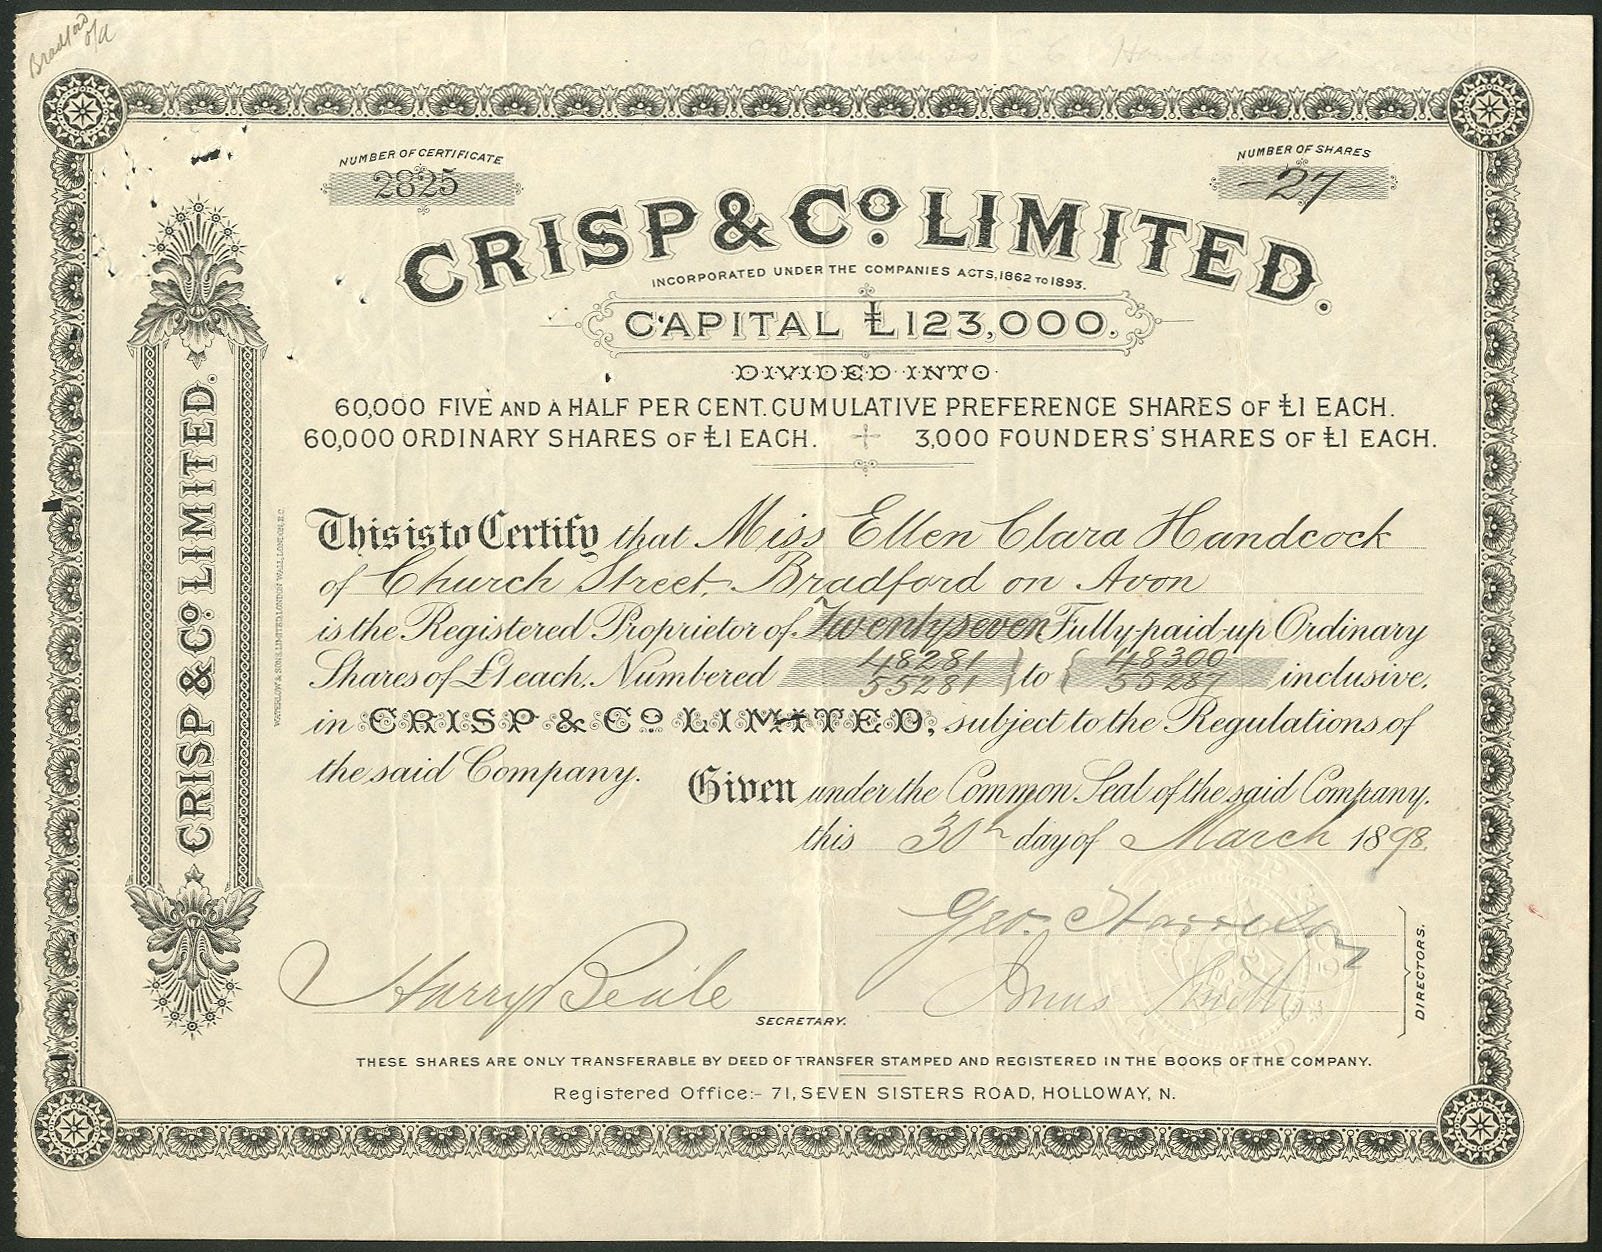 Bradford o/a
NUMBER OF CERTIFICATE
2825
NUMBER OF SHARES
-27-
CRISP & Co. LIMITED.
INCORPORATED UNDER THE COMPANIES ACTS, 1862 TO 1893.
CAPITAL £123,000.
DIVIDED INTO
60,000 FIVE AND A HALF PER CENT. CUMULATIVE PREFERENCE SHARES OF £1 EACH.
60,000 ORDINARY SHARES OF £1 EACH. + 3,000 FOUNDERS' SHARES OF £1 EACH.
This is to Certify that Miss Ellen Clara Handcock
of Church Street, Bradford on Avon
is the Registered Proprietor of Twentyseven Fully-paid-up Ordinary
Shares of £1 each. Numbered 48281 } to { 48300
55281 55287 inclusive.
in CRISP & Co. LIMITED, subject to the Regulations of
the said Company.
Given under the Common Seal of the said Company.
this 30th day of March 1898.
Geo. Harrison
Harry Beale
SECRETARY.
Smith
DIRECTORS.
THESE SHARES ARE ONLY TRANSFERABLE BY DEED OF TRANSFER STAMPED AND REGISTERED IN THE BOOKS OF THE COMPANY.
Registered Office:- 71, SEVEN SISTERS ROAD, HOLLOWAY, N.
CRISP & Co. LIMITED.
WATERLOW & SONS LIMITED, LONDON WALL, LONDON, E.C.